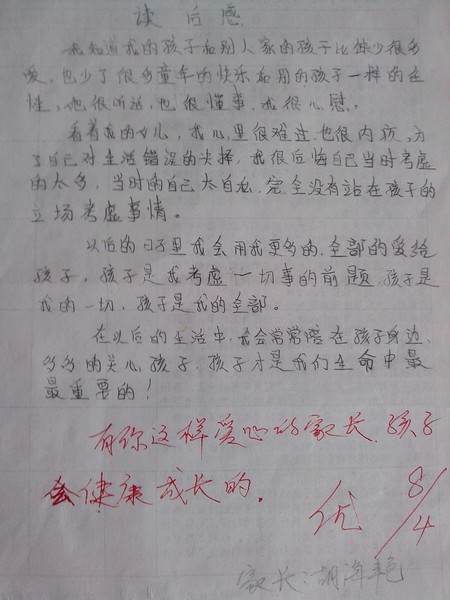 读后感
我知道我的孩子和别人家的孩子比你少很多
爱,也少了很多童年的快乐和别的孩子一样的任
性,她很听话,也很懂事,我很心慰。
看着我的女儿,我心里很难过也很内疚,为
了自己对生活错误的决择,我很后悔自己当时考虑
的太多,当时的自己太自私,完全没有站在孩子的
立场考虑事情。
以后的日子里我会用我更多的,全部的爱给
孩子,孩子是我考虑一切事的前题,孩子是
我的一切,孩子是我的全部。
在以后的生活中,我会常常陪在孩子身边,
多多的关心孩子,孩子才是我们生命中最
最重要的!
有你这样爱心的家长,孩子
会健康成长的。
优 8/4
家长:胡海艳